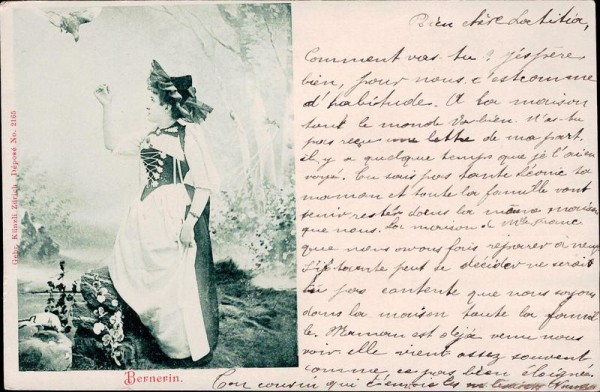 Gebr. Künzli, Zürich. Déposé No. 2165
Bernerin.
Bien chère Laetitia,
Comment vas-tu? j'espère
bien, pour nous, c'est comme
d'habitude. A la maison
tout le monde va bien. N'as-tu
pas reçu une lettre de ma part
il y a quelque temps que je l'ai
voyé. Tu sais pas tante
maman et toute la famille vont
venir rester dans la même maison
que nous. La maison de
que nous avons fais réparer à neuf
Si tante peut se décider ne serait
tu pas contente que nous soyons
dans la maison toute la famil
le. Maman est déjà venu nous
voir elle vient assez souvent
comme ce pas bien éloignée
Ton cousin qui t'envoie